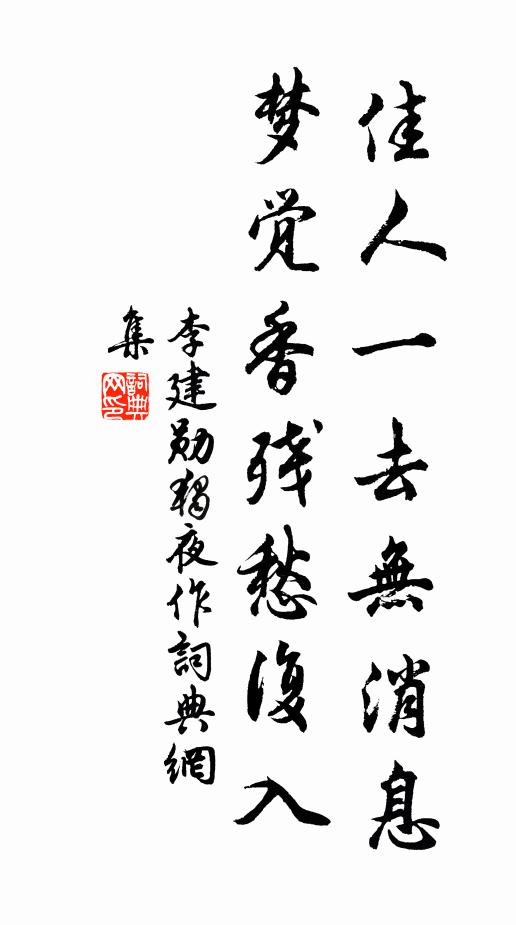 佳人一去無消息
梦觉香残愁復入
李建勋独夜作詞典網
集
詞典
网印